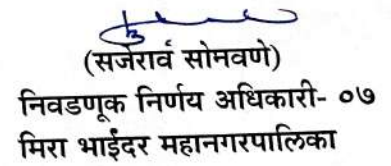 (सर्जेराव सोमवणे)
निवडणूक निर्णय अधिकारी- ०७
मिरा भाईंदर महानगरपालिका